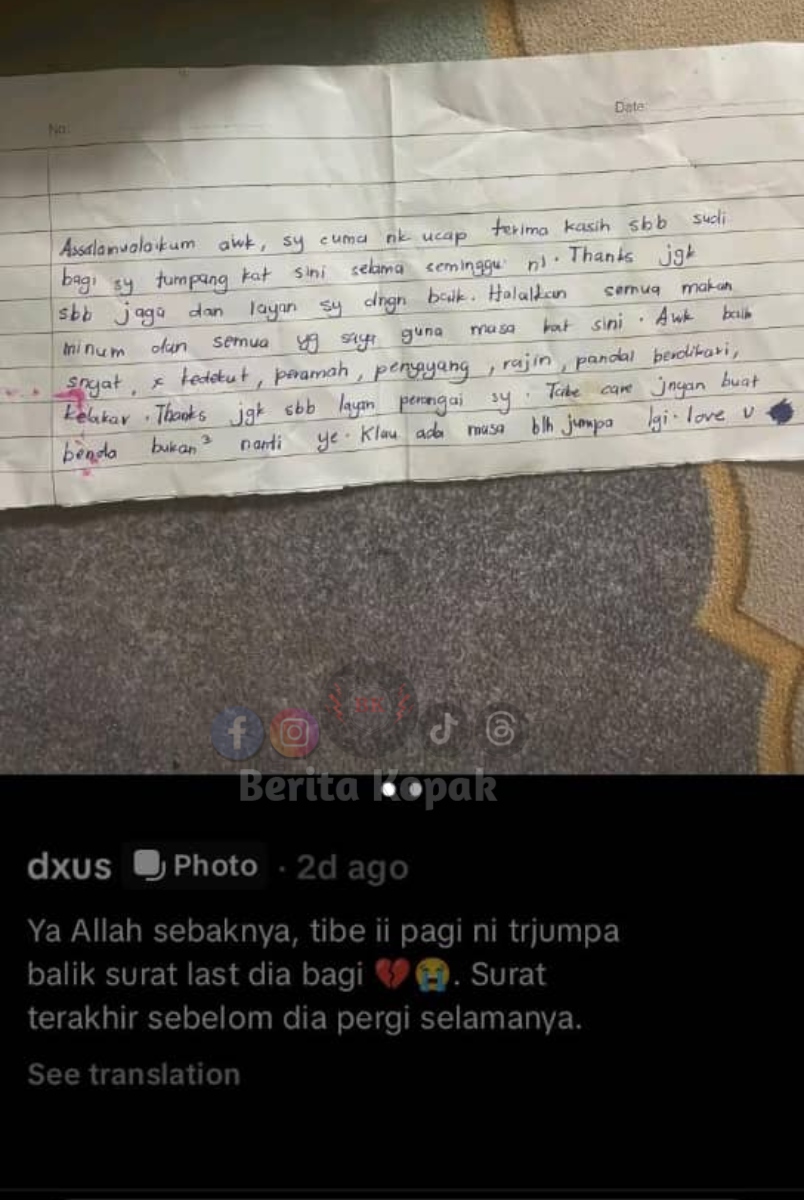 No:
Date:
Assalamualaikum awk, sy cuma nk ucap terima kasih sbb sudi
bagi sy tumpang kat sini selama seminggu ni. Thanks jgk
sbb jaga dan layan sy dngn baik. Halalkan semua makan
minum dan semua yg saya guna masa kat sini. Awk baik
sngat, x kedekut, peramah, penyayang, rajin, pandai berdikari,
kelakar. Thanks jgk sbb layan perangai sy. Take care jngan buat
benda bukan³ nanti ye. Klau ada masa blh jumpa lgi. love u
Berita Kopak
dxus Photo · 2d ago
Ya Allah sebaknya, tibe ii pagi ni trjumpa
balik surat last dia bagi 💔😭. Surat
terakhir sebelom dia pergi selamanya.
See translation